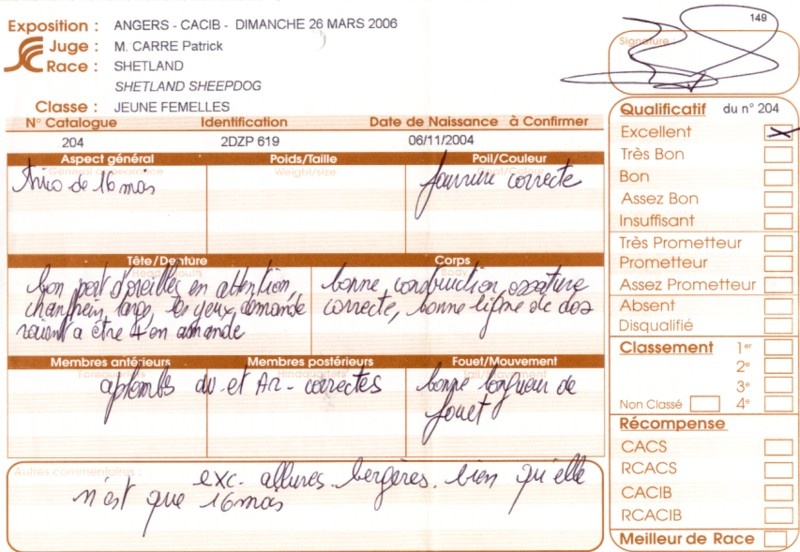 Exposition : ANGERS - CACIB - DIMANCHE 26 MARS 2006
Juge : M. CARRE Patrick
Race : SHETLAND
SHETLAND SHEEPDOG
Classe : JEUNE FEMELLES
149
Signature :
N° Catalogue Identification Date de Naissance à Confirmer
204 2DZP 619 06/11/2004
Aspect général Poids/Taille Poil/Couleur
General appearance Weight/size
Trico de 16 mois
fourrure correcte
Tête/Denture Corps
Body
bon port d'oreilles en attention,
chanfrein large, les yeux demande
raient a être + en amande
bonne construction, ossature
correcte, bonne ligne de dos
Membres antérieurs Membres postérieurs Fouet/Mouvement
aplombs av et AR - corrects
bonne longueur de
fouet
Autres commentaires :
exc. allures bergères. bien qu'elle
n'est que 16 mois
Qualificatif du n° 204
Excellent
Très Bon
Bon
Assez Bon
Insuffisant
Très Prometteur
Prometteur
Assez Prometteur
Absent
Disqualifié
Classement 1er
2e
3e
Non Classé 4e
Récompense
CACS
RCACS
CACIB
RCACIB
Meilleur de Race